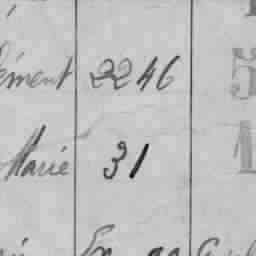 ément 2246 5
Marie 31 1